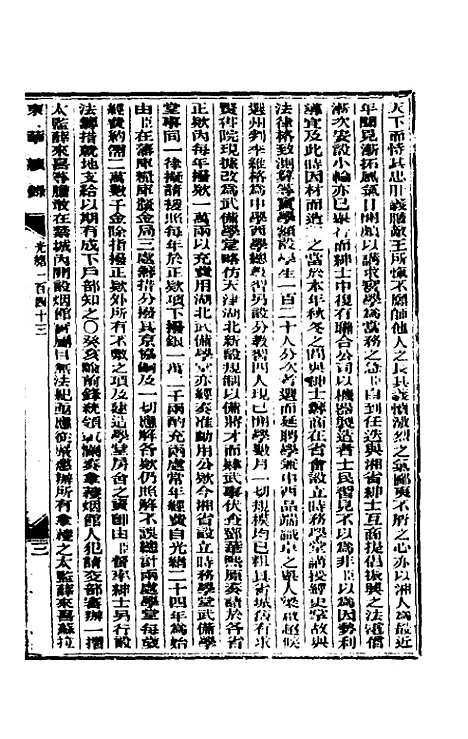 天下而恃其忠肝義膽敵王所愾不願師他人之長其義憤激烈之氣鄙夷不屑之心亦以湘人為最近
年聞見漸拓風氣日開頗以講求實學為當務之急臣自到任迭與湘省紳士互商提倡振興之法電信
漸次安設小輪亦已舉行而紳士中復有聯合公司以機器製造者士民習見不以為非臣以為因勢利
導宜及此時因材而造 之當於本年秋冬之間與紳士籌商在省會設立時務學堂講授經史掌故與
法律格致測算等實學額設學生一百二十人分次考選而延聘學兼中西品端識卓之舉人梁啟超候
選州判李維格為中學西學總教習另設分教習四人現已開學數月一切規模均已粗具省城舊有求
賢書院現據改為武備學堂略仿天津湖北新設規制以備將才而肄武事伏查 鄧華熙原奏請於各省
正款內每年撥款一萬兩以充費用湖北武備學堂亦經奏准動用公款今湘省設立時務學堂武備學
堂事同一律擬請援照每年於正款項下撥銀一萬二千兩酌充兩處常年經費自光緒二十四年為始
由臣在藩庫糧庫釐金局三處籌措分撥其京協餉及一切應解各款仍照解不誤總計兩處學堂每歲
經費約需二萬數千金除指撥正款外所有不敷之項及建造學堂房舍之資即由臣督率紳士另行設
法籌措就地支給以期有成下戶部知之〇癸亥諭前鋒統領 奏拿獲烟館人犯請交部審辦一摺
太監薛來喜等膽敢在禁城內開設烟館實屬目無法紀亟應從嚴懲辦所有拿獲之太監薛來喜蘇拉
東華續錄
光緒一百四十三
三